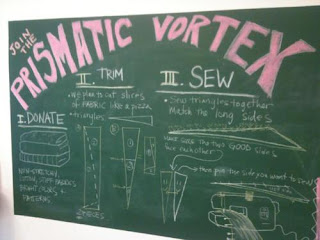 JOIN THE
PRISMATIC VORTEX
I. DONATE
NON-STRETCHY,
COTTON, STIFF FABRICS
BRIGHT COLORS +
PATTERNS
II. TRIM
• We plan to cut slices
of FABRIC like a pizza
• triangles
III. SEW
• Sew triangles together
Match the long sides
make sure the two GOOD sides
face each other
then pin the side you want to sew